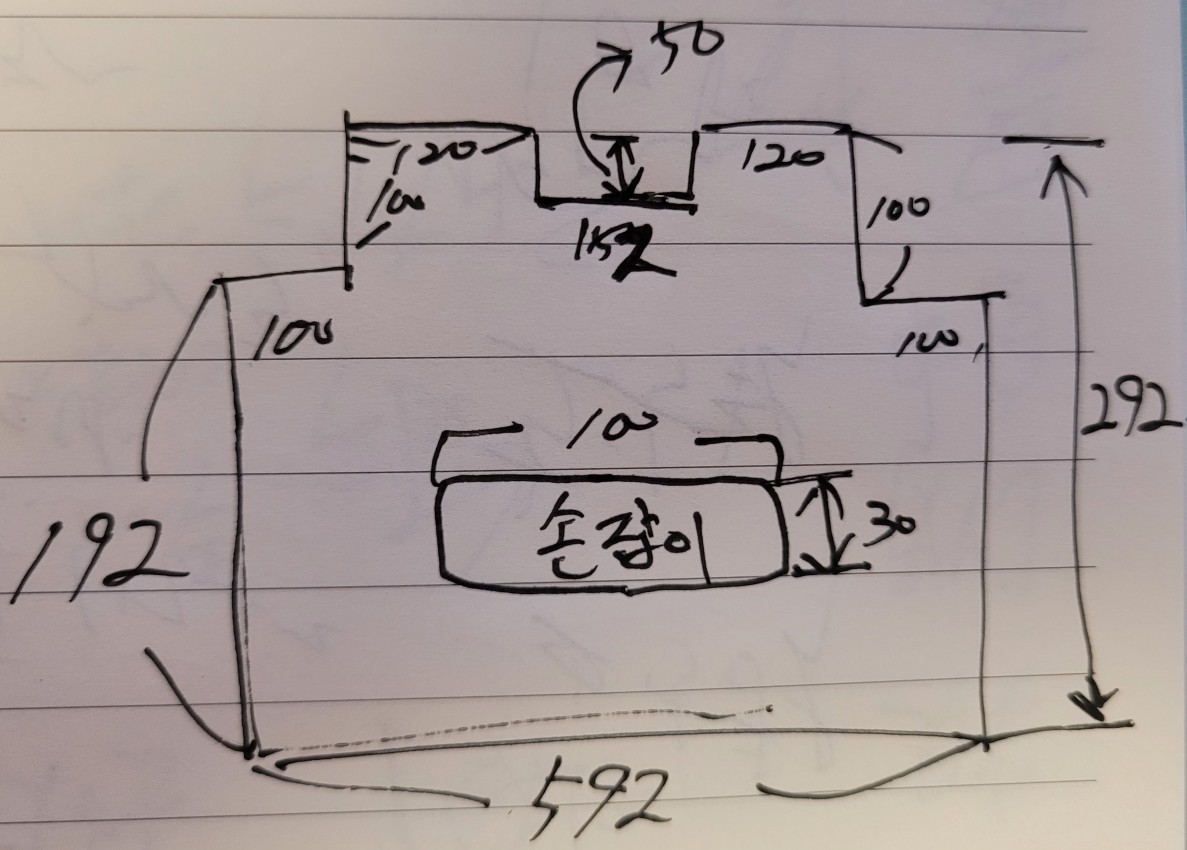 50
120
120
100
100
152
100
100
292
100
손잡이
30
192
592